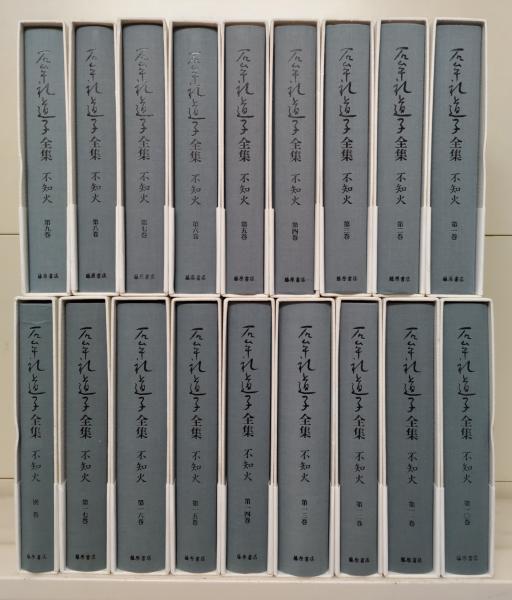 石牟礼道子全集 不知火 第一巻 藤原書店
石牟礼道子全集 不知火 第二巻 藤原書店
石牟礼道子全集 不知火 第三巻 藤原書店
石牟礼道子全集 不知火 第四巻 藤原書店
石牟礼道子全集 不知火 第五巻 藤原書店
石牟礼道子全集 不知火 第六巻 藤原書店
石牟礼道子全集 不知火 第七巻 藤原書店
石牟礼道子全集 不知火 第八巻 藤原書店
石牟礼道子全集 不知火 第九巻 藤原書店
石牟礼道子全集 不知火 第一〇巻 藤原書店
石牟礼道子全集 不知火 第一一巻 藤原書店
石牟礼道子全集 不知火 第一二巻 藤原書店
石牟礼道子全集 不知火 第一三巻 藤原書店
石牟礼道子全集 不知火 第一四巻 藤原書店
石牟礼道子全集 不知火 第一五巻 藤原書店
石牟礼道子全集 不知火 第一六巻 藤原書店
石牟礼道子全集 不知火 第一七巻 藤原書店
石牟礼道子全集 不知火 別巻 藤原書店